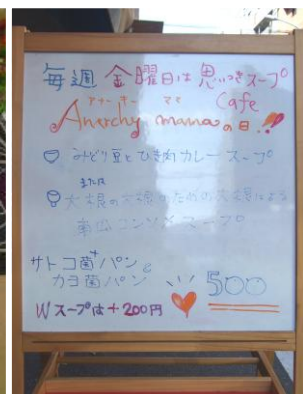 毎週 金曜日は 思いつきスープ
Cafe
アナーキー ママ
Anarchy mamaの日!!
みどり豆とひき肉カレースープ
または
大根の大根のための大根による
コンソメスープ
サトコ菌パン&
カヨ菌パン
500
Wスープは+200円